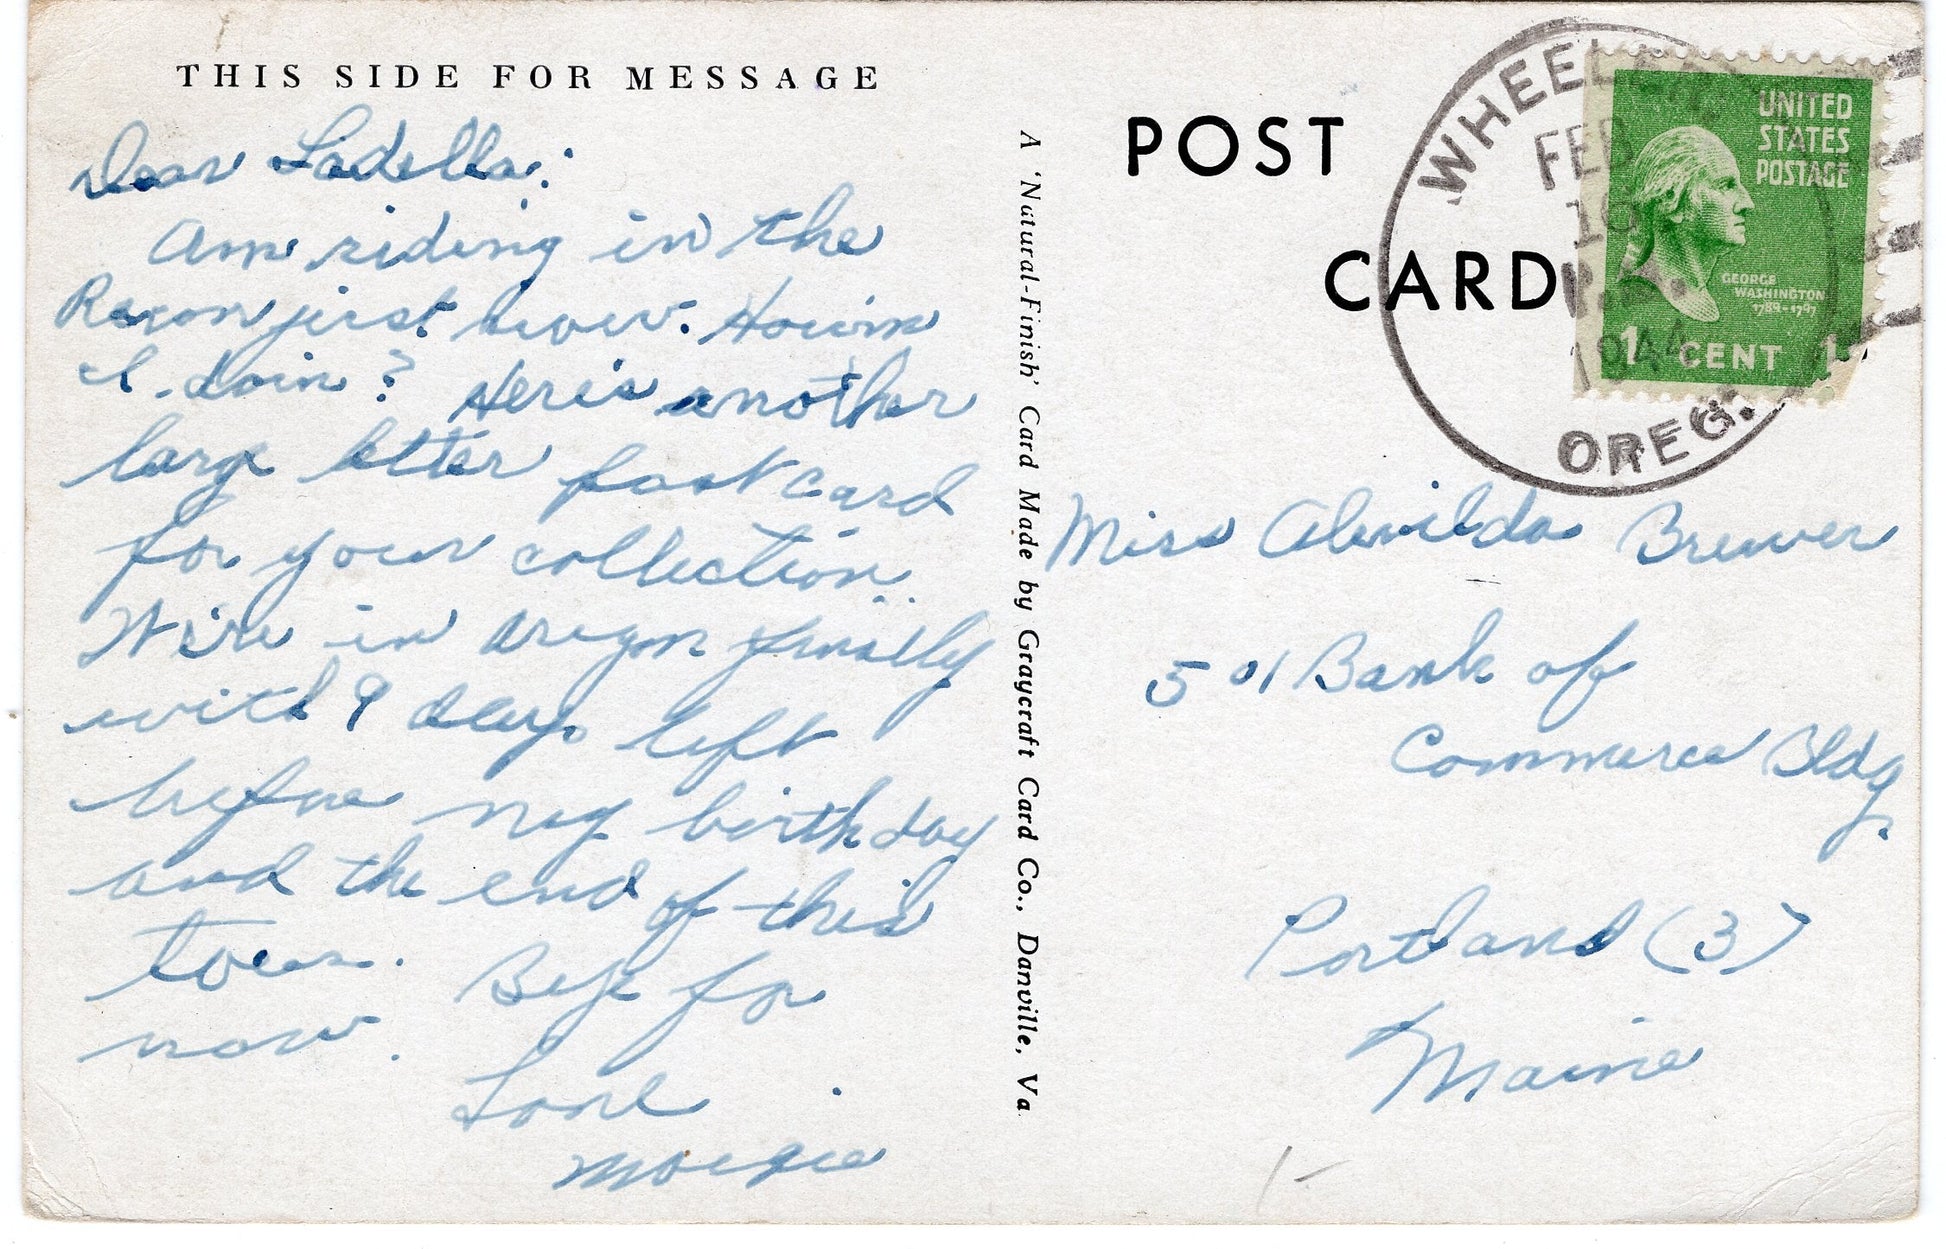 THIS SIDE FOR MESSAGE
Dear Ladella:
Am riding in the
just now. How'm
I doin? Here's another
large letter post card
for your collection.
We're in Oregon finally
with 9 days left
before my birthday
and the end of this
tour. Bye for
now.
Love
A 'Natural-Finish' Card Made by Graycraft Card Co., Danville, Va
POST
CARD
WHEELER
FEB
1944
OREG.
UNITED
STATES
POSTAGE
GEORGE
WASHINGTON
1789-1797
1 CENT 1
Miss Brewer
501 Bank of
Commerce Bldg.
Portland (3)
Maine